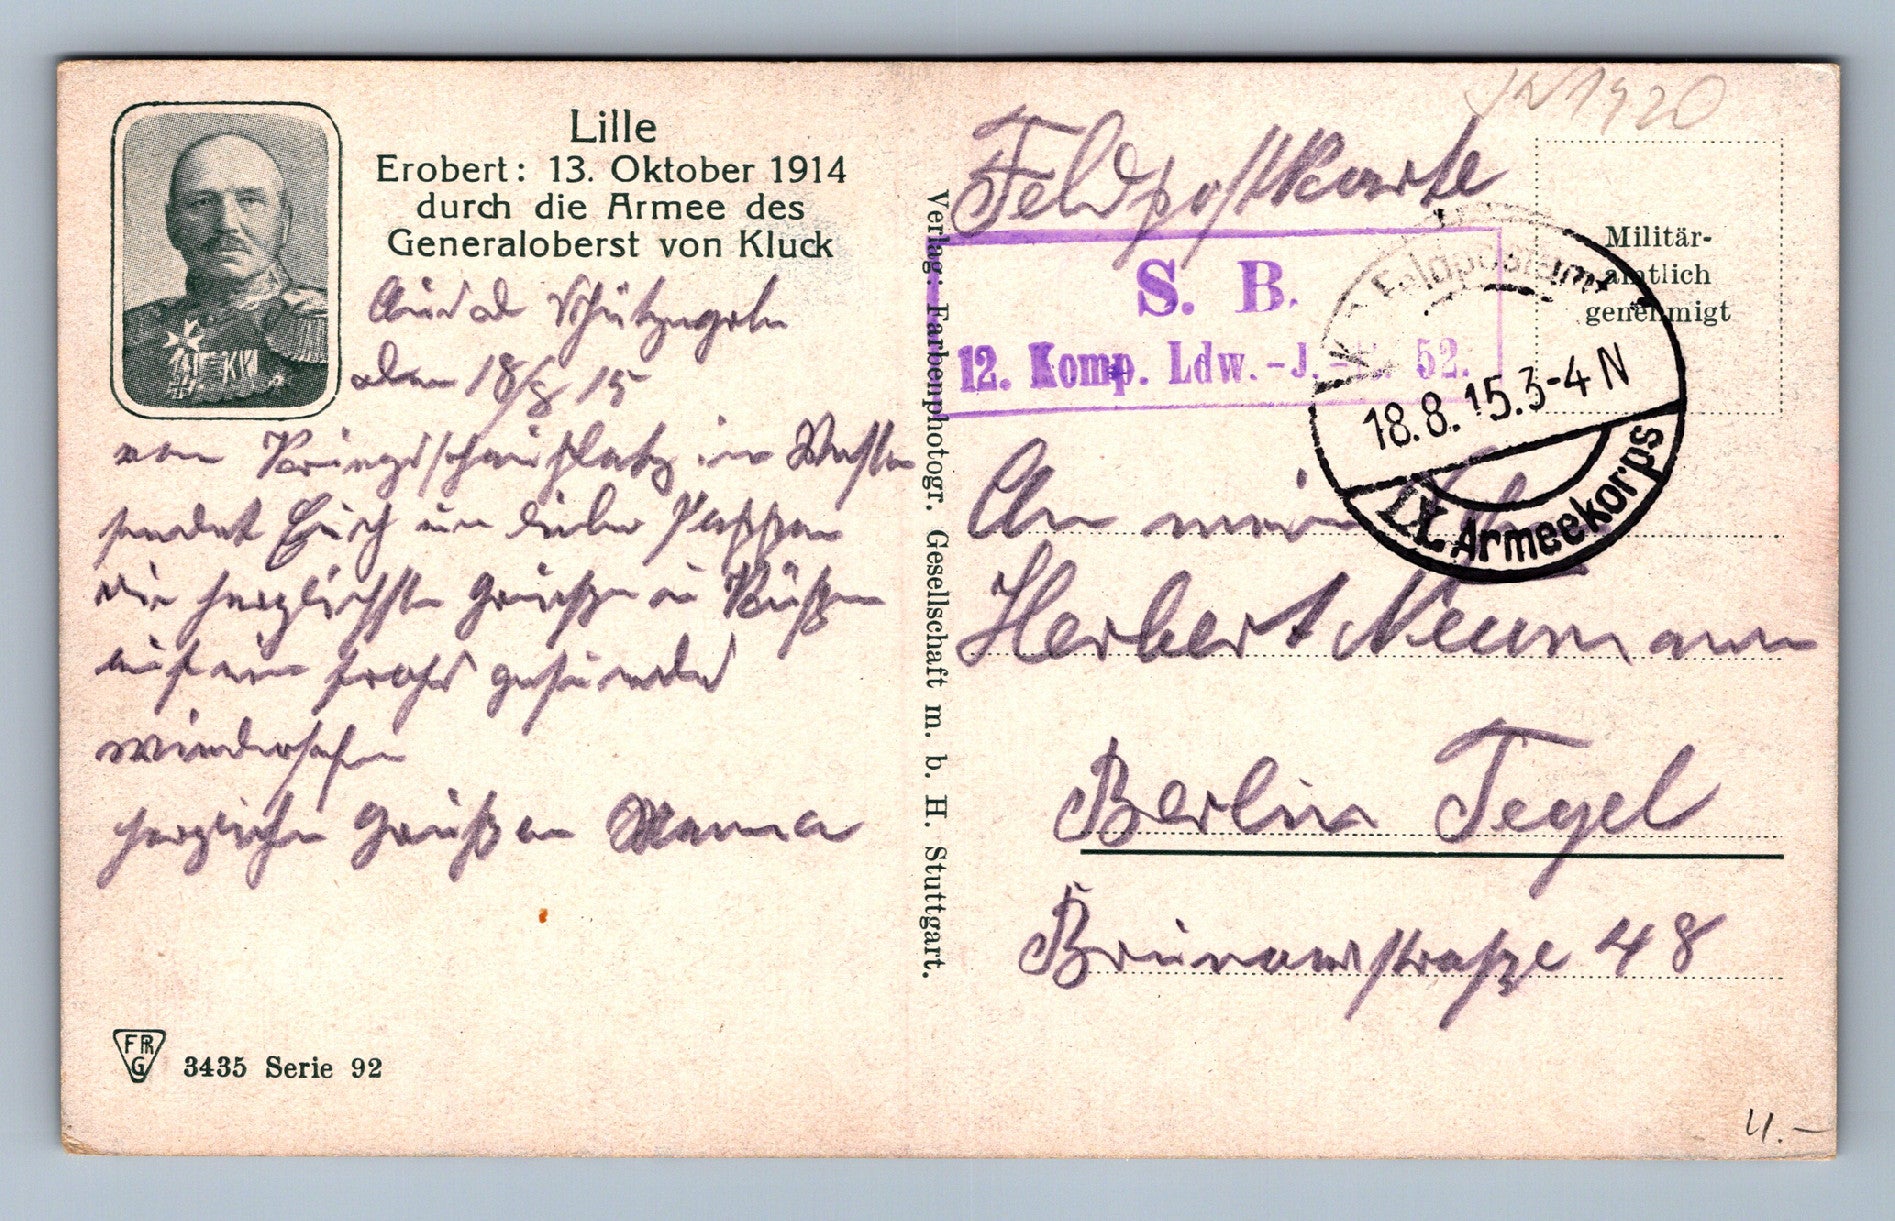 Lille
Erobert: 13. Oktober 1914
durch die Armee des
Generaloberst von Kluck
den 18/8 15
vom Kriegsschauplatz im Westen
sendet Euch ihr lieber
die herzlichsten Grüße u Küsse
auf ein frohes gesundes
wiedersehen
herzliche Grüße an Mama
3435 Serie 92
FRPG
Verlag: Farbenphotogr. Gesellschaft m. b. H. Stuttgart.
JW1920
Feldpostkarte
S. B.
12. Komp. Ldw.-J.-R. 52.
Militär-
amtlich
genehmigt
K. D. Feldpostamt
18.8.15.3-4N
IX. Armeekorps
An mein
Herbert Neumann
Berlin Tegel
Brunowstraße 48
4.-